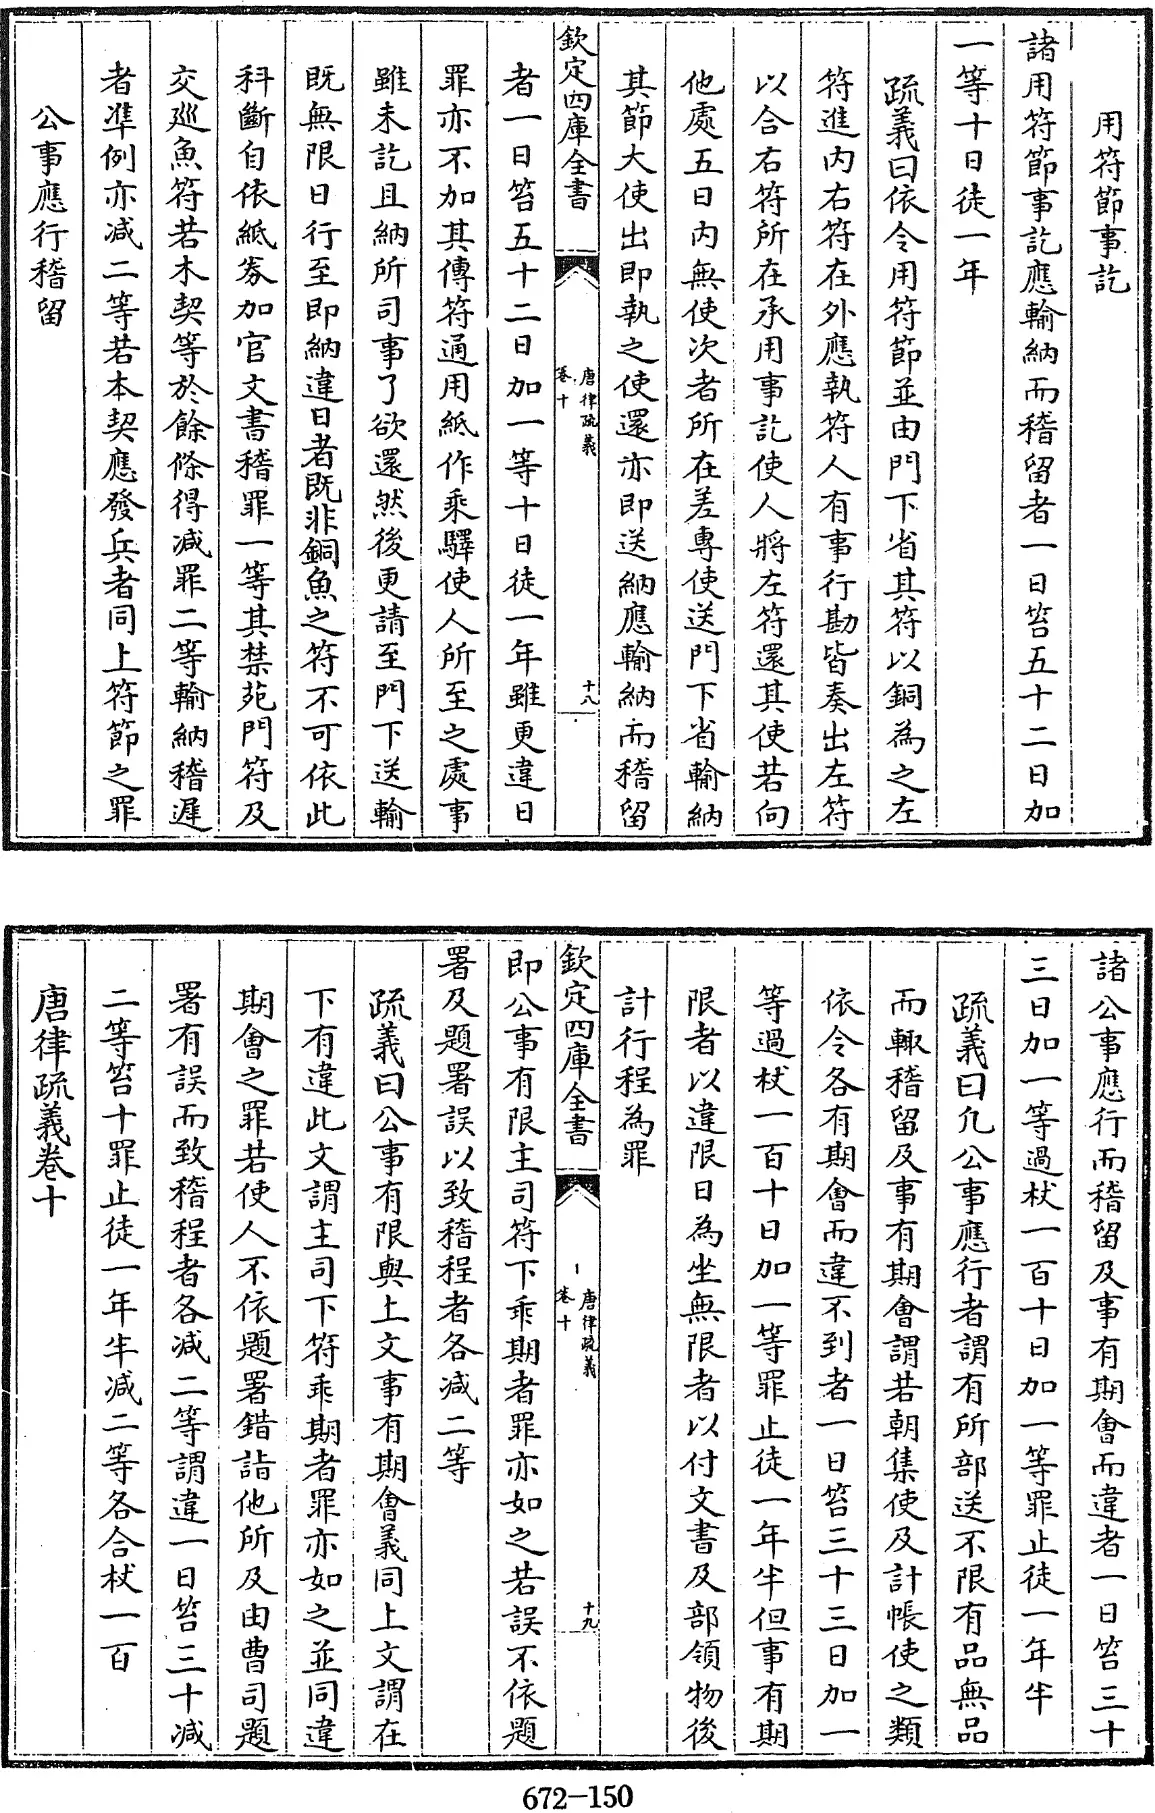 用符節事訖
諸用符節事訖應輸納而稽留者一日笞五十二日加
一等十日徒一年
疏義曰依令用符節並由門下省其符以銅為之左
符進內右符在外應執符人有事行勘皆奏出左符
以合右符所在承用事訖使人將左符還其使若向
他處五日內無使次者所在差專使送門下省輸納
其節大使出即執之使還亦即送納應輸納而稽留
欽定四庫全書
唐律疏義
卷十
十八
者一日笞五十二日加一等十日徒一年雖更違日
罪亦不加其傳符通用紙作乘驛使人所至之處事
雖未訖且納所司事了欲還然後更請至門下送輸
既無限日行至即納違日者既非銅魚之符不可依此
科斷自依紙劵加官文書稽罪一等其禁苑門符及
交廵魚符若木契等於餘條得減罪二等輸納稽遲
者準例亦減二等若本契應發兵者同上符節之罪
公事應行稽留
諸公事應行而稽留及事有期會而違者一日笞三十
三日加一等過杖一百十日加一等罪止徒一年半
疏義曰凢公事應行者謂有所部送不限有品無品
而輙稽留及事有期會謂若朝集使及計帳使之類
依令各有期會而違不到者一日笞三十三日加一
等過杖一百十日加一等罪止徒一年半但事有期
限者以違限日為坐無限者以付文書及部領物後
計行程為罪
欽定四庫全書
唐律疏義
卷十
十九
即公事有限主司符下乖期者罪亦如之若誤不依題
署及題署誤以致稽程者各減二等
疏義曰公事有限與上文事有期會義同上文謂在
下有違此文謂主司下符乖期者罪亦如之並同違
期會之罪若使人不依題署錯詣他所及由曹司題
署有誤而致稽程者各減二等謂違一日笞三十減
二等笞十罪止徒一年半減二等各合杖一百
唐律疏義卷十
672-150